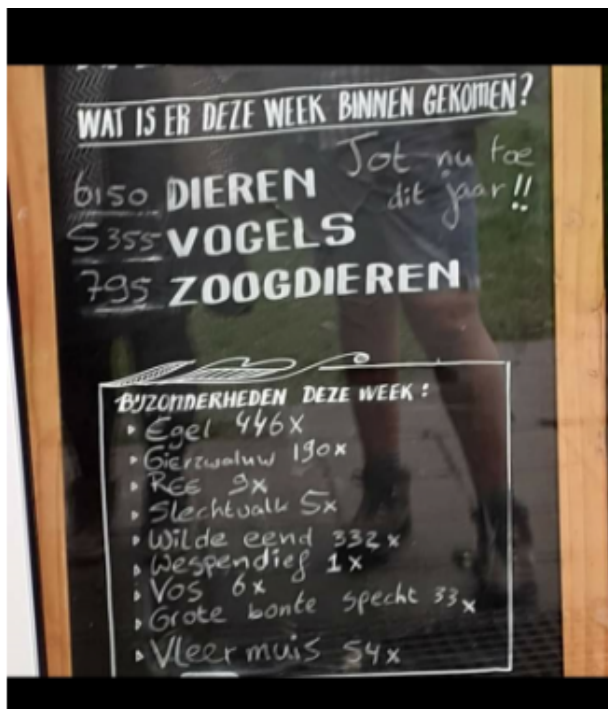 WAT IS ER DEZE WEEK BINNEN GEKOMEN?
Tot nu toe
6150 DIEREN
dit jaar!!
5355 VOGELS
795 ZOOGDIEREN
BIJZONDERHEDEN DEZE WEEK:
Egel 446x
Gierzwaluw 190x
REE 9x
Slechtvalk 5x
Wilde eend 332x
Wespendief 1x
Vos 6x
Grote bonte specht 33x
Vleermuis 54x